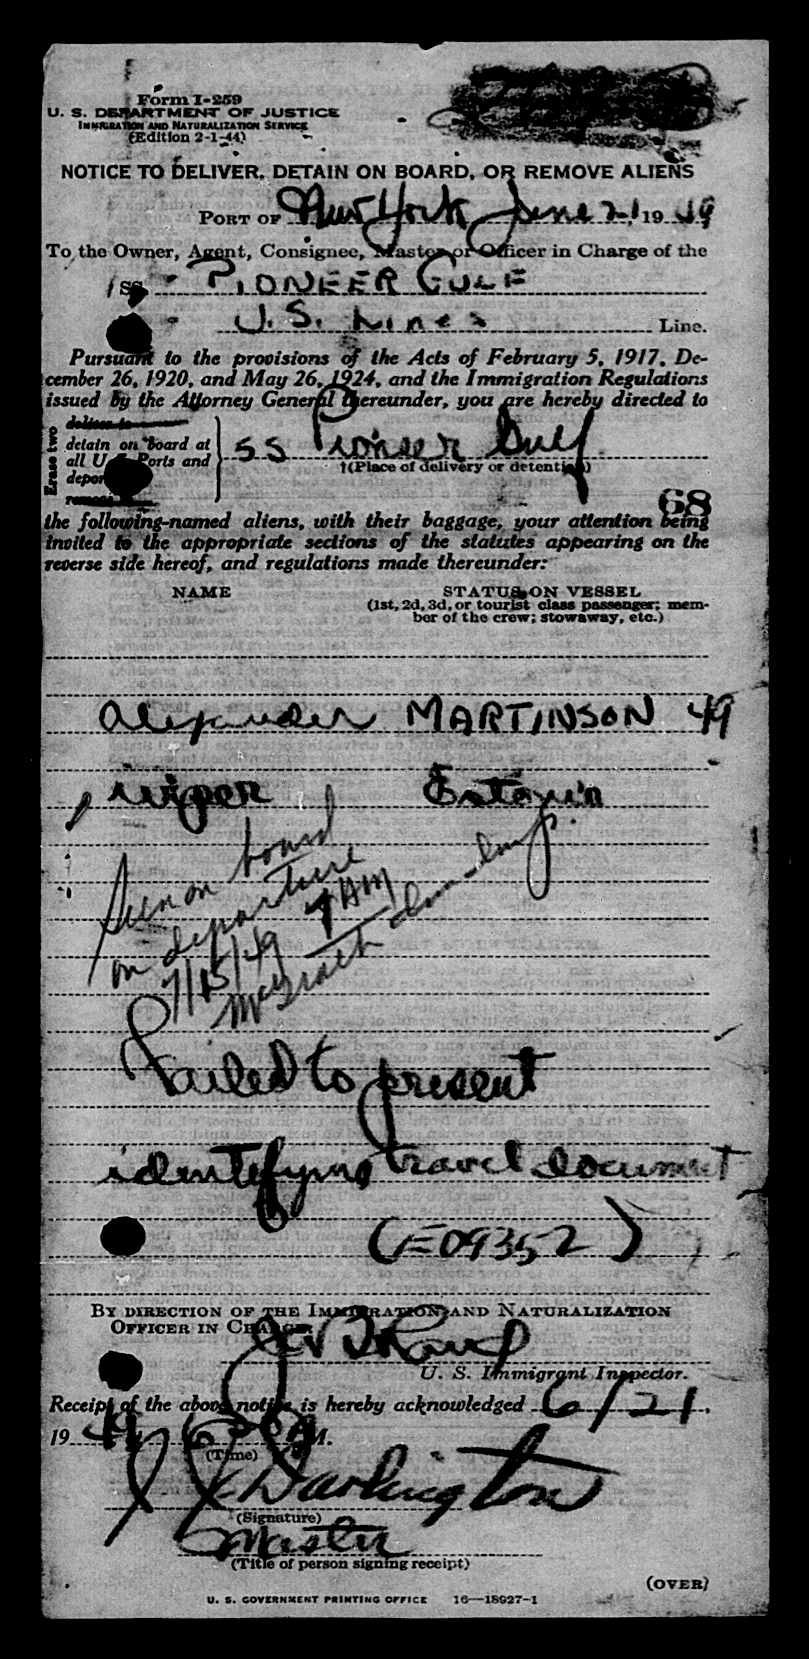 Form I-259
U. S. DEPARTMENT OF JUSTICE
IMMIGRATION AND NATURALIZATION SERVICE
(Edition 2-1-44)
NOTICE TO DELIVER, DETAIN ON BOARD, OR REMOVE ALIENS
PORT OF New York June 21, 19 49
To the Owner, Agent, Consignee, Master or Officer in Charge of the
SS PIONEER GULF
U.S. Lines Line.
Pursuant to the provisions of the Acts of February 5, 1917, De-
cember 26, 1920, and May 26, 1924, and the Immigration Regulations
issued by the Attorney General thereunder, you are hereby directed to
Erase two
deliver to
detain on board at
all U. S. Ports and
deport
remove
SS Pioneer Gulf
†(Place of delivery or detention)
68
the following-named aliens, with their baggage, your attention being
invited to the appropriate sections of the statutes appearing on the
reverse side hereof, and regulations made thereunder:
NAME STATUS ON VESSEL
(1st, 2d, 3d, or tourist class passenger; mem-
ber of the crew; stowaway, etc.)
Alexander MARTINSON 49
wiper Estonia
Seen on board
on departure
7/15/49 7 AM
McGrath
Failed to present
identifying travel document
(E09352)
BY DIRECTION OF THE IMMIGRATION AND NATURALIZATION
OFFICER IN CHARGE:
U. S. Immigrant Inspector.
Receipt of the above notice is hereby acknowledged 6/21,
19 49 M.
(Time)
Darlington
(Signature)
Master
(Title of person signing receipt)
(OVER)
U. S. GOVERNMENT PRINTING OFFICE 16—18927-1